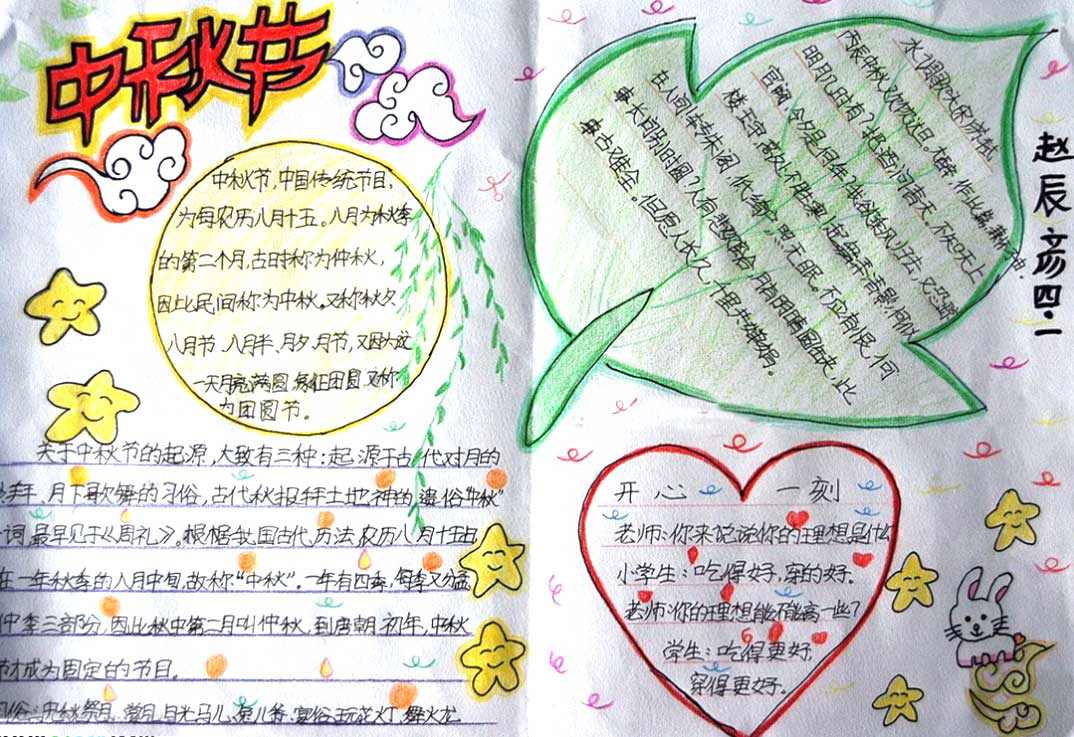 中秋节
中秋节,中国传统节目,
为每农历八月十五。八月为秋季
的第二个月,古时称为仲秋,
因此民间称为中秋。又称秋夕
八月节、八月半、月夕、月节,又因为这
一天月亮满圆,象征团圆,又称
为团圆节。
关于中秋节的起源,大致有三种:起源于古代对月的
、月下歌舞的习俗,古代秋报拜土地神的遗俗“中秋”
一词,最早见于《周礼》。根据我国古代历法,农历八月十五
在一年秋季的八月中旬,故称“中秋”。一年有四季,每季又分
仲季三部分,因此秋中第二月叫仲秋,到唐朝初年,中秋
节才成为固定的节目。
习俗:中秋祭月、赏月、月光马儿、兔儿爷、宴俗、玩花灯、舞火龙
水调歌头 宋 苏轼
丙辰中秋,欢饮达旦。大醉,作此篇,兼怀子由
明月几时有?把酒问青天,不知天上
宫阙,今夕是何年?我欲乘风归去,又恐琼
楼玉宇,高处不胜寒,起舞弄清影,何似
在人间!转朱阁,低绮户,照无眠。不应有恨,何
事长向别时圆?人有悲欢离合,月有阴晴圆缺,此
事古难全。但愿人长久,千里共婵娟。
赵辰彦 四·一
开心一刻
老师:你来说说你的理想是什么
小学生:吃得好,穿的好.
老师:你的理想能不能高一些?
学生:吃得更好,
穿得更好。